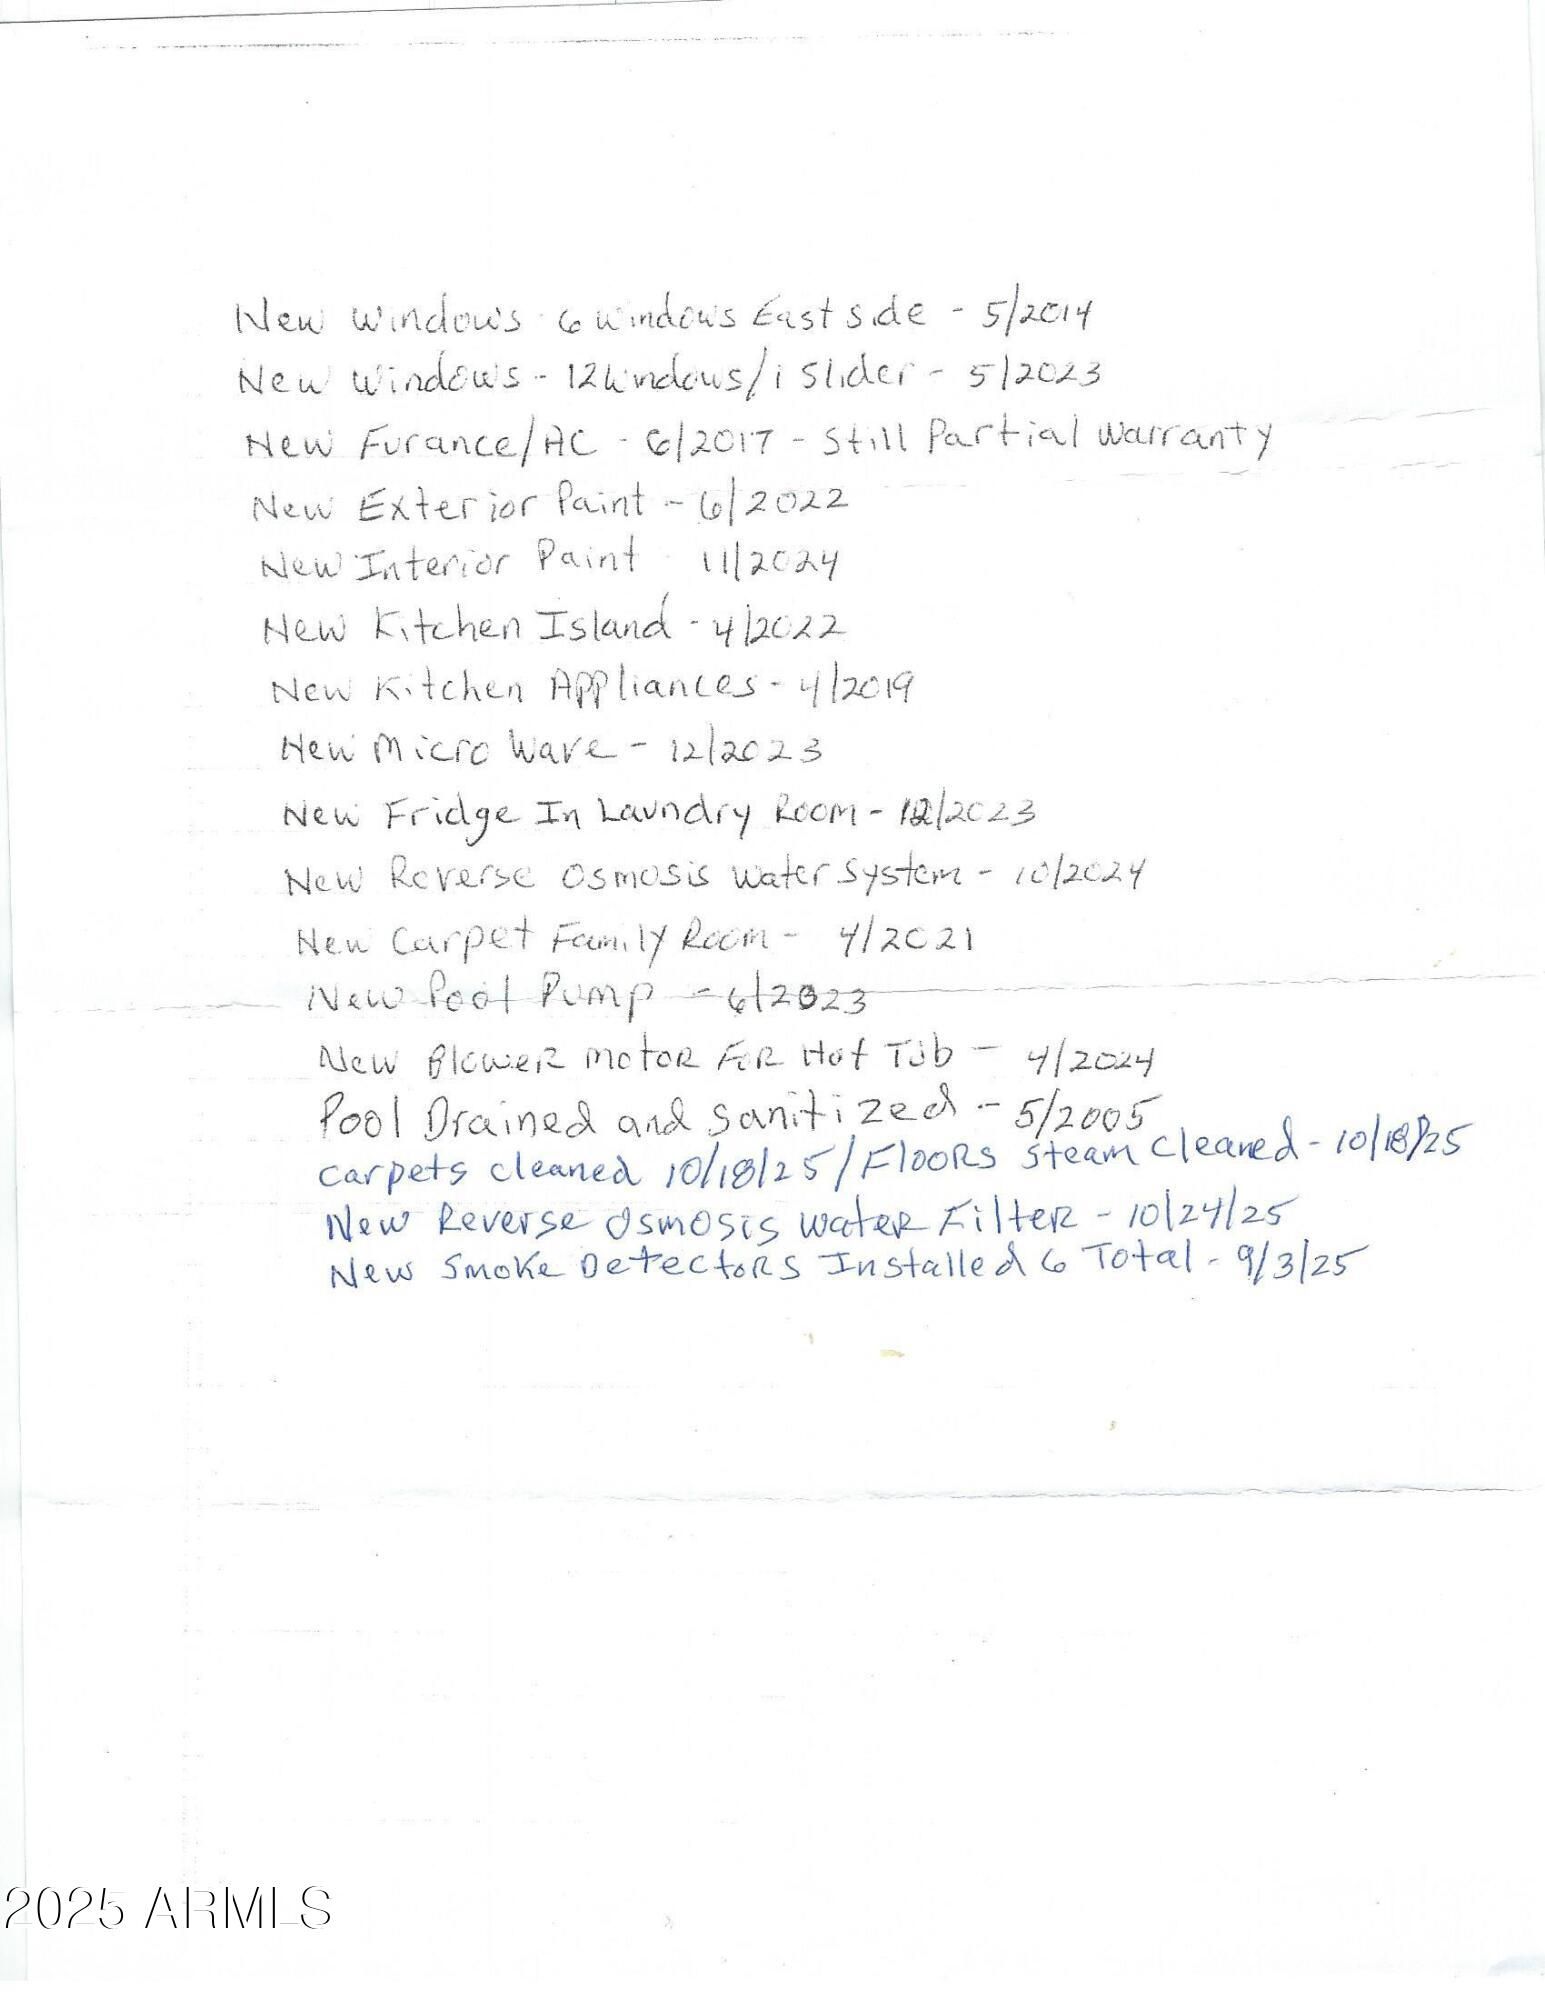 New Windows - 6 windows East side - 5/2014
New Windows - 12 windows/1 slider - 5/2023
New Furance/AC - 6/2017 - Still Partial Warranty
New Exterior Paint - 6/2022
New Interior Paint 11/2024
New Kitchen Island - 4/2022
New Kitchen Appliances - 4/2019
New Micro Wave - 12/2023
New Fridge In Laundry Room - 12/2023
New Reverse Osmosis Water System - 10/2024
New Carpet Family Room - 4/2021
New Pool Pump - 6/2023
New Blower Motor For Hot Tub - 4/2024
Pool Drained and sanitized - 5/2005
carpets cleaned 10/18/25 / Floors steam cleaned - 10/18/25
New Reverse Osmosis Water Filter - 10/24/25
New Smoke Detectors Installed 6 Total - 9/3/25
2025 ARMLS